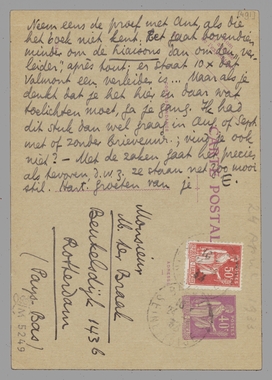 Neem eens de proef met Ant, als die
het boek niet kent. Het gaat bovendien
minder om de liaisons dan om den ver-
leider, après tout; er staat 10 x dat
Valmont een verleider is... Maar als je
denkt dat je het hier en daar wat
toelichten moet, ga je gang. Ik had
dit stuk dan wel graag in Aug. of Sept.
met of zonder brieven; vind je ook
niet? – Met de zaken gaat het precies
als tevoren, d.w.z. ze staan net zoo mooi
stil. Hart. groeten van je
CARTE POSTALE
Monsieur
M. ter Braak
Beukelsdijk 143b
Rotterdam
(Pays-Bas)
50c
40c
5249